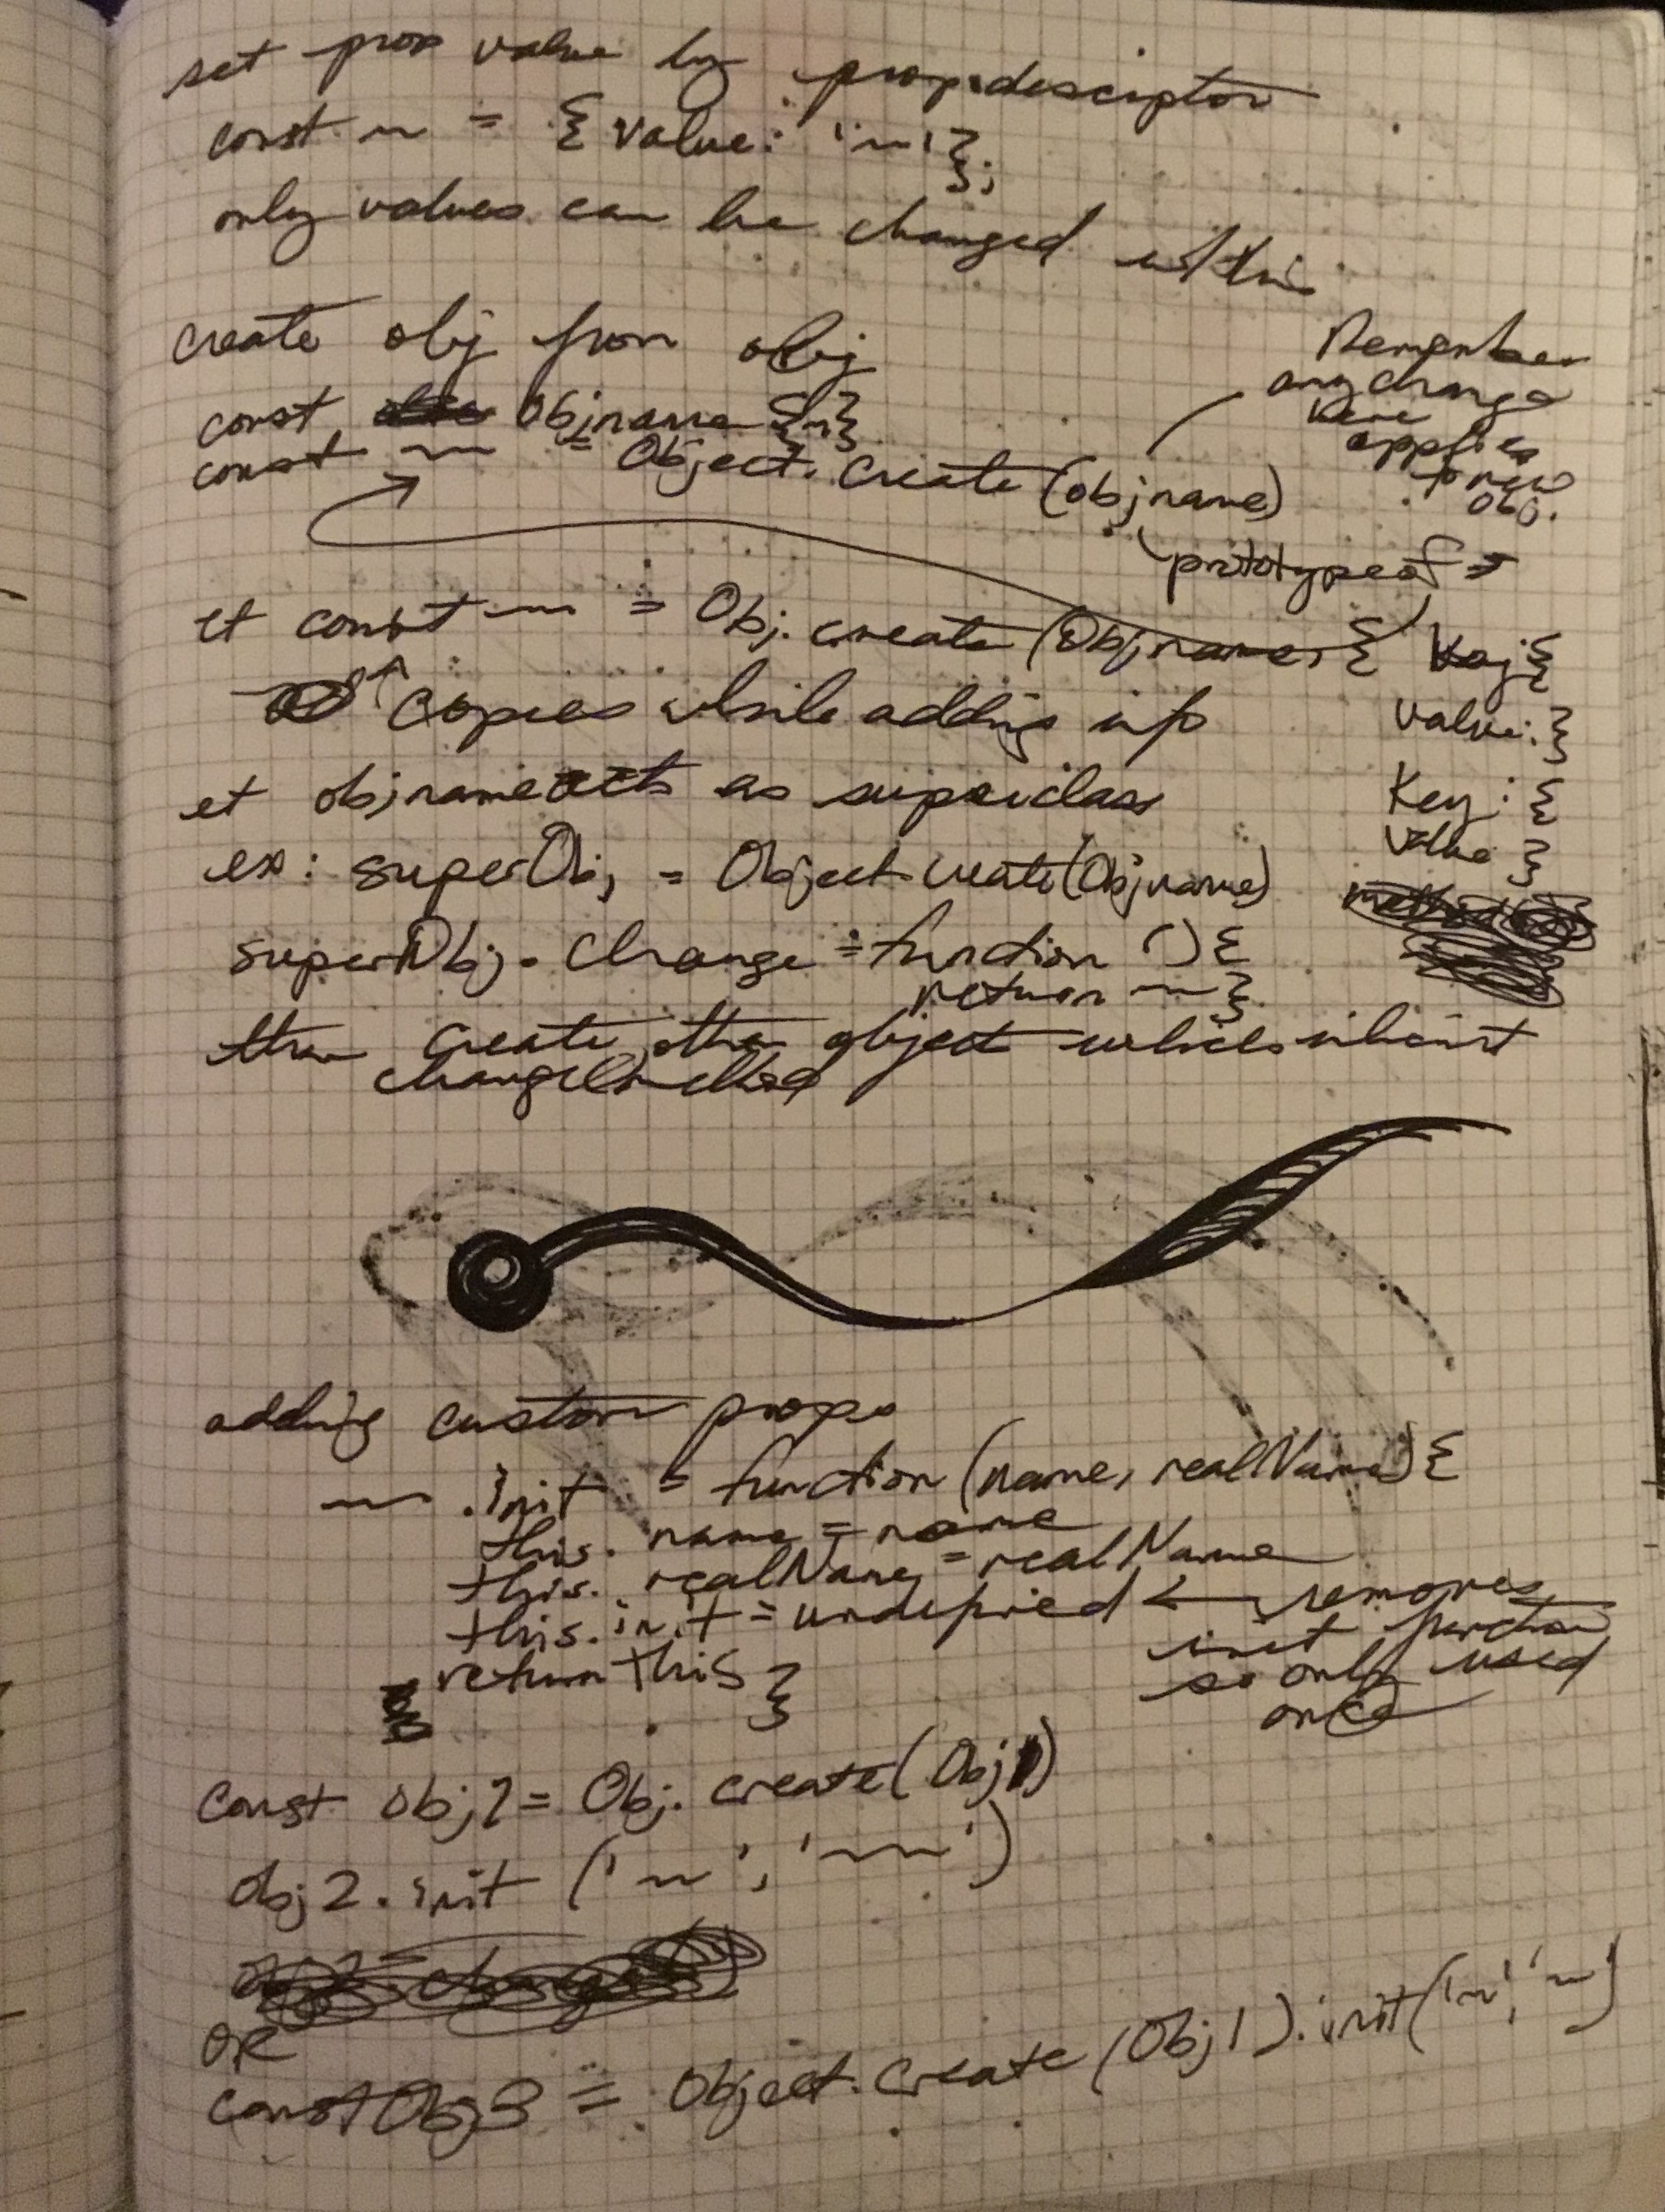 set prop value by propdescriptor
const ~ = { value: '~'};
only values can be changed w/this
create obj from obj
Remember
any change
here
applies
to new
obj.
const Objname {~}
const ~ = Object.create(objname)
prototype of
et const ~ = Obj.create(Objname, { Key{
value:}
Key: {
value }
copies while adding info
et objname acts as superclass
ex: superObj = Object.create(Objname)
superObj.change = function () {
return ~}
then create other object which inherit
change method
adding custom props
~ .init = function (name, realName) {
this. name = name
this. realName = realName
this. init = undefined ← removes
init function
so only used
once
return this }
const obj2 = Obj. create(Obj1)
obj2.init ('~', '~')
OR
const Obj3 = Object.create (Obj1).init('~', '~)